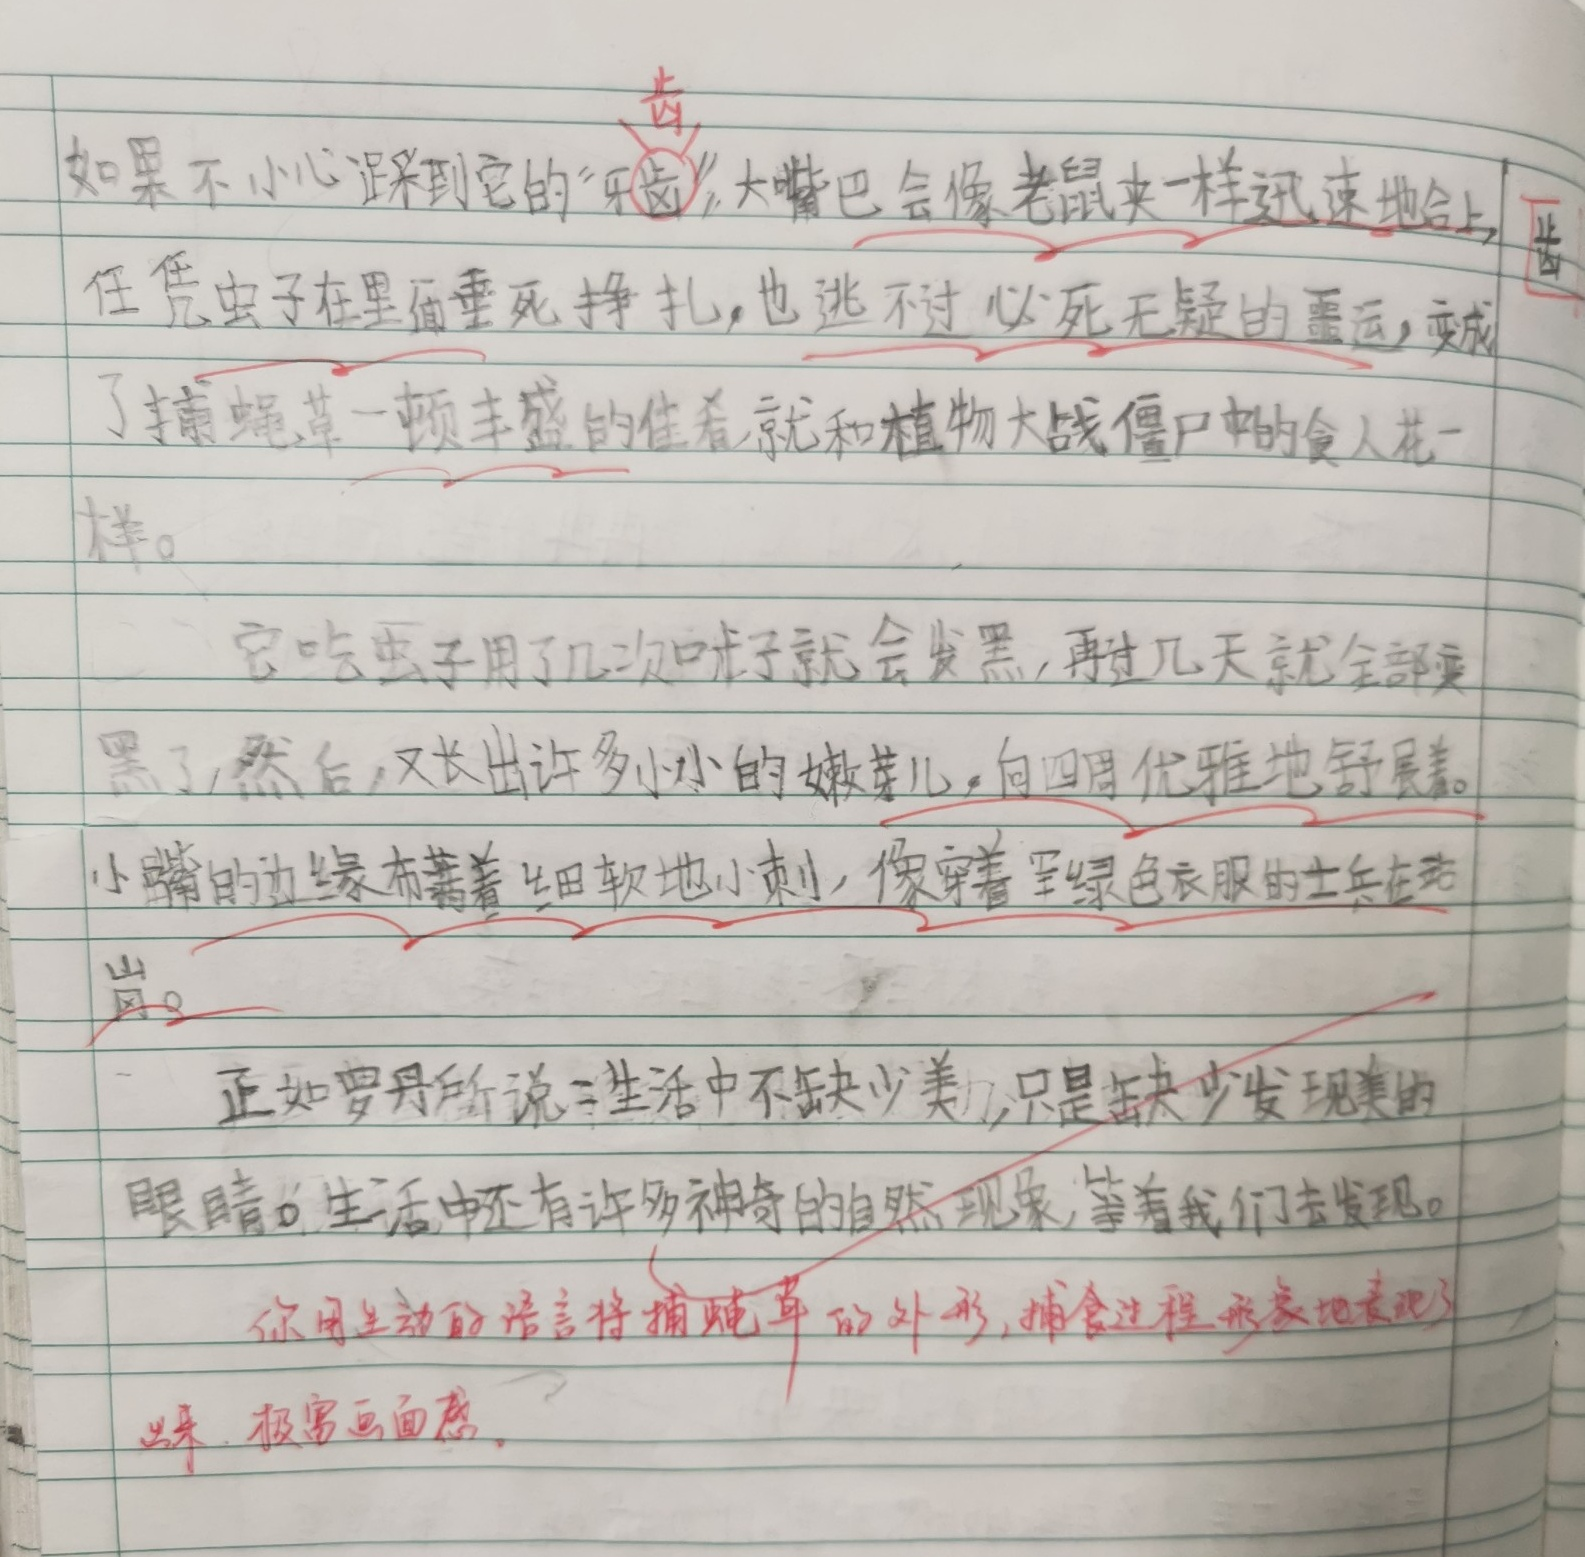 齿
如果不小心踩到它的“牙齿”，大嘴巴会像老鼠夹一样迅速地合上，
齿
任凭虫子在里面垂死挣扎，也逃不过必死无疑的噩运，变成
了捕蝇草一顿丰盛的佳肴，就和植物大战僵尸中的食人花一
样。
它吃虫子用了几次叶子就会发黑，再过几天就全部变
黑了，然后，又长出许多小小的嫩芽儿，向四周优雅地舒展着。
小嘴的边缘布满着细软地小刺，像穿着军绿色衣服的士兵在站
岗。
正如罗丹所说：生活中不缺少美，只是缺少发现美的
眼睛。生活中还有许多神奇的自然现象，等着我们去发现。
你用生动的语言将捕蝇草的外形，捕食过程形象地表现了
出来，极富画面感。